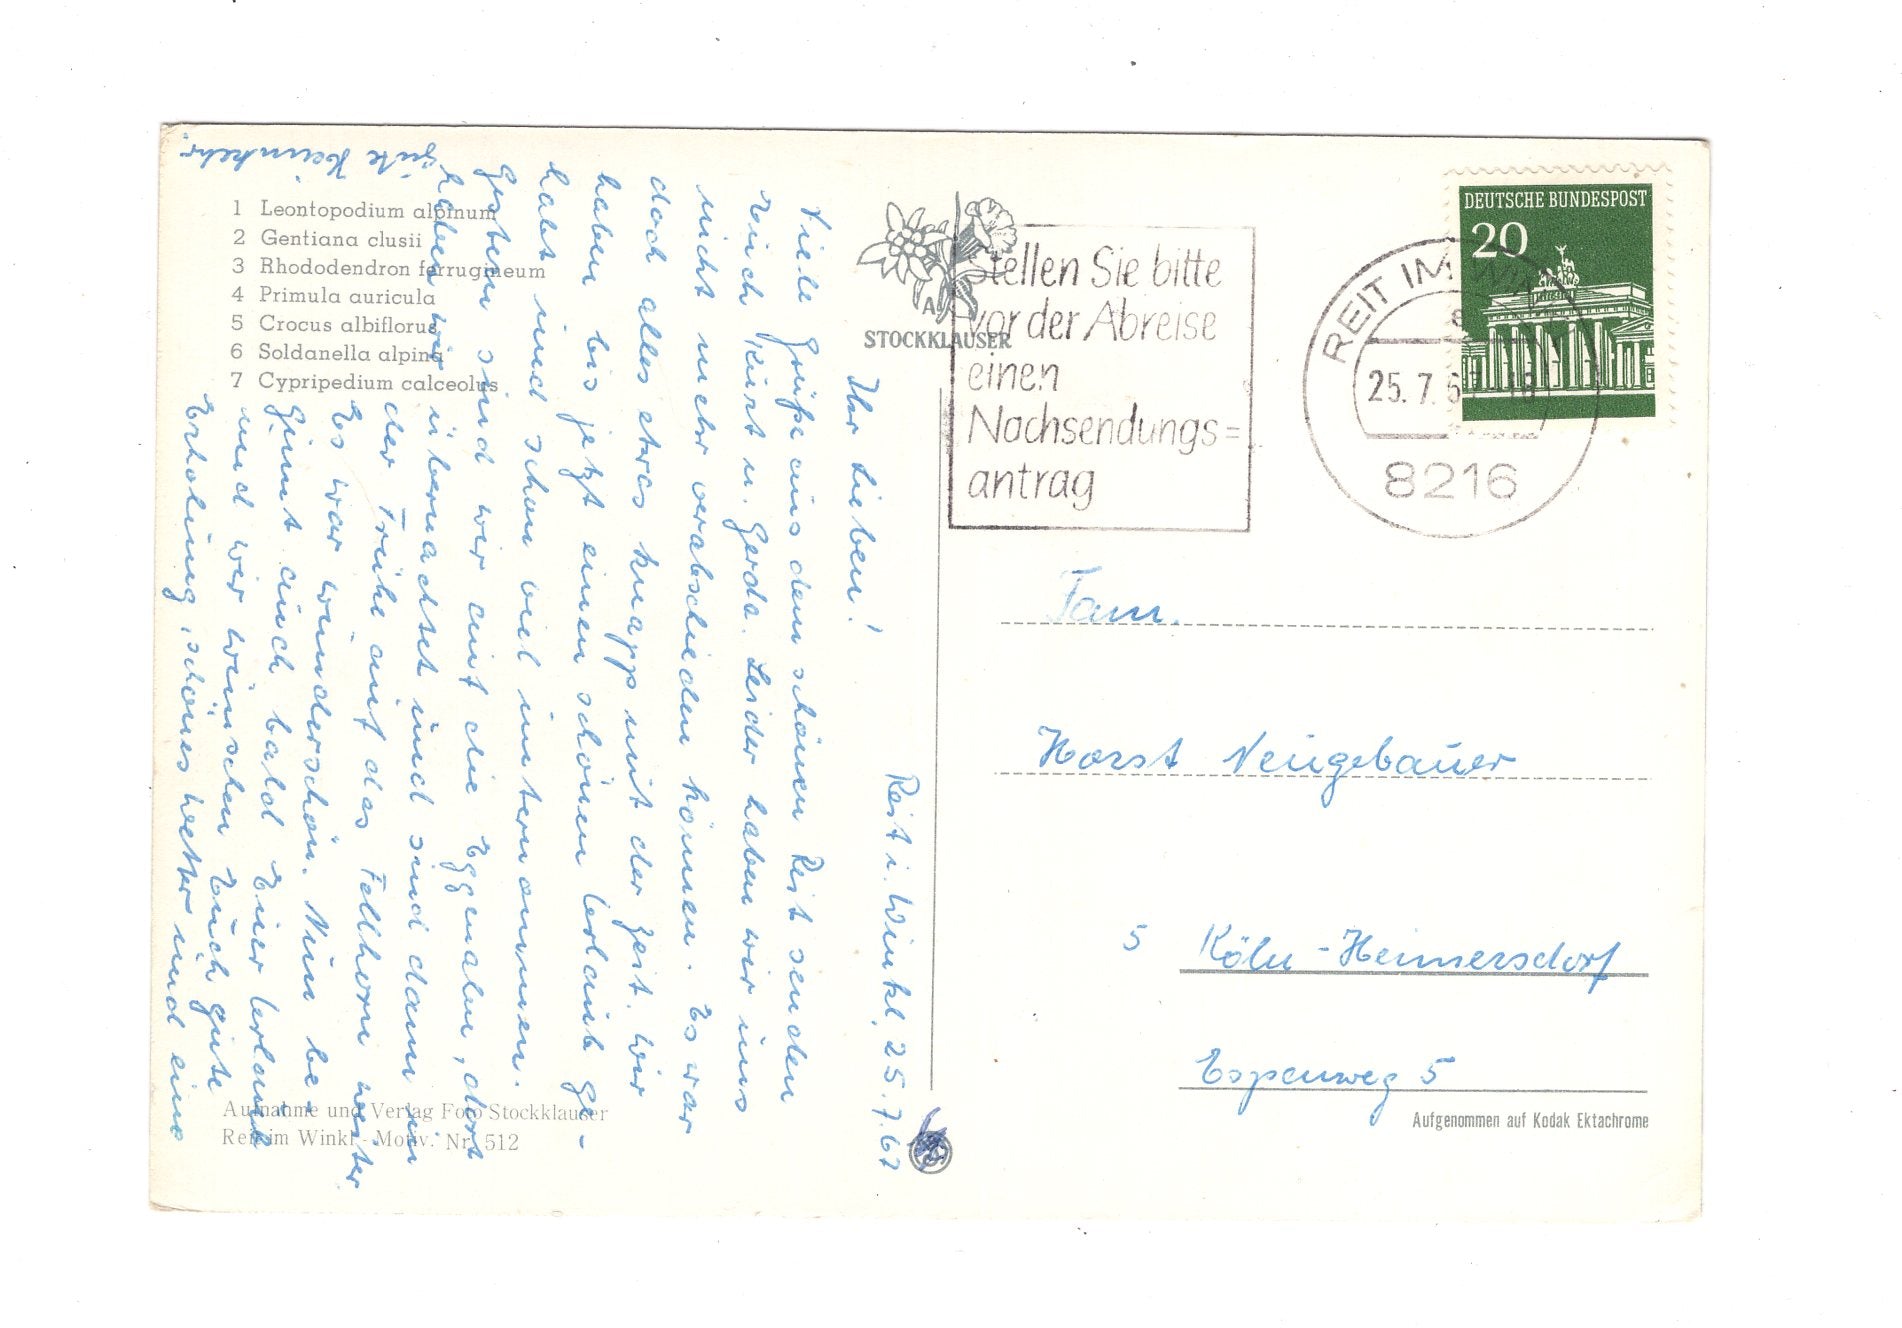 1 Leontopodium alpinum
2 Gentiana clusii
3 Rhododendron ferrugineum
4 Primula auricula
5 Crocus albiflorus
6 Soldanella alpina
7 Cypripedium calceolus
STOCKKLAUSER
Stellen Sie bitte
vor der Abreise
einen
Nachsendungs=
antrag
DEUTSCHE BUNDESPOST
20
REIT IM WINKL
25.7.67
8216
Reit i. Winkl, 25.7.67
Ihr Lieben!
Viele Grüße aus dem schönen Reit senden
Euch Kurt u. Gerda. Leider haben wir uns
nicht mehr verabschieden können. Es war
doch alles etwas knapp mit der Zeit. Wir
haben bis jetzt einen schönen Urlaub ge-
habt und schon viel unternommen.
Gestern sind wir auf die Eggenalm, dort
haben wir übernachtet und sind dann in
der Frühe auf das Fellhorn weiter
Es war wunderschön. Nun be-
ginnt auch bald Euer Urlaub
und wir wünschen Euch gute
Erholung, schönes Wetter und eine
gute Heimkehr.
Fam.
Horst Neugebauer
5 Köln-Heimersdorf
Espenweg 5
Aufnahme und Verlag Foto Stockklauser
Reit im Winkl - Motiv. Nr. 512
Aufgenommen auf Kodak Ektachrome